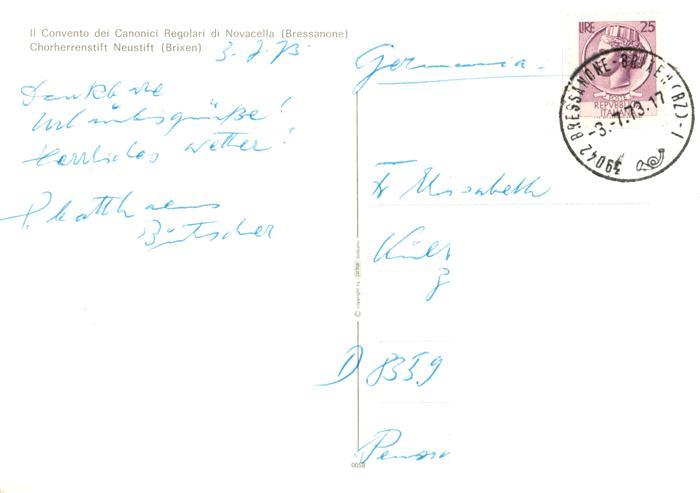 Il Convento dei Canonici Regolari di Novacella (Bressanone)
Chorherrenstift Neustift (Brixen)
3.7.73.
Dankbare
Urlaubsgrüße!
Herrliches Wetter!
P. Matthaeus
Bütscher
Germania.
LIRE 25
POSTE
REPVBBLICA
ITALIANA
39042 BRESSANONE-BRIXEN (BZ)-I
-3.-7.73.17
Fr Elisabeth
D 8359
© copyright by
0058